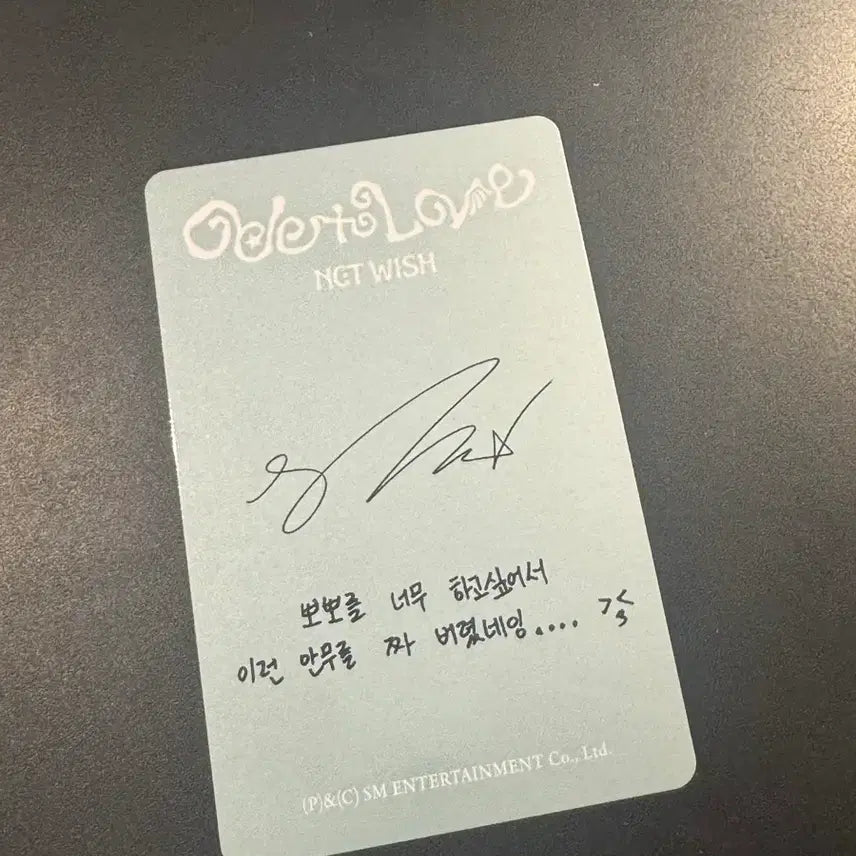 Ode to Love
NCT WISH
뽀뽀를 너무 하고싶어서
이런 안무를 짜 버렸네잉.... >3<
(P)&(C) SM ENTERTAINMENT Co., Ltd.